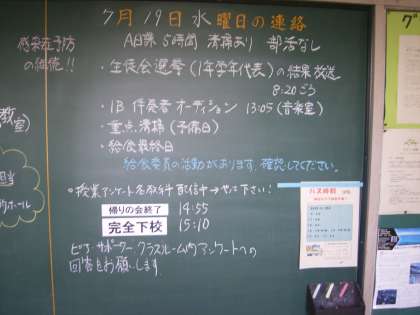 7月19日水曜日の連絡
A日課 5時間 清掃あり 部活なし
・生徒会選挙(1年学年代表)の結果放送
8:20ごろ
・1B 伴奏者オーディション 13:05(音楽室)
・重点清掃(予備日)
・給食最終日
給食委員の活動があります。確認してください。
帰りの会終了 14:55
完全下校 15:10
ピア・サポーター クラスルーム内アンケートへの
回答をお願いします
感染症予防
の徹底!!
教室)
担当